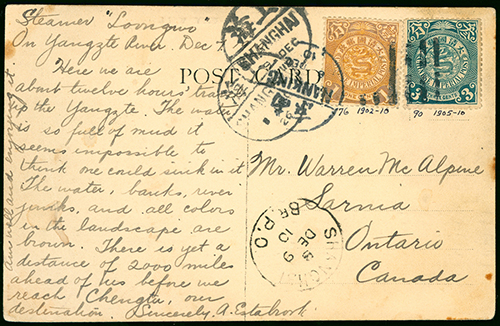 Steamer "Loongwo"
On Yangzte River. Dec 7
Here we are
about twelve hours' travel
up the Yangzte. The water
is so full of mud it
seems impossible to
think one could sink in it
The water, banks, river
junks, and all colors
in the landscape are
brown. There is yet a
distance of 2000 miles
ahead of us before we
reach Chengtu, our
destination. Sincerely, A. Estabrook.
Am well and enjoying it
POST CARD
SHANGHAI
DEC
NANKING
3
3
76 1902-10
90 1905-10
Mr. Warren McAlpine
Sarnia
Ontario
Canada
SHANGHAI
DE 9
10
BR. P.O.